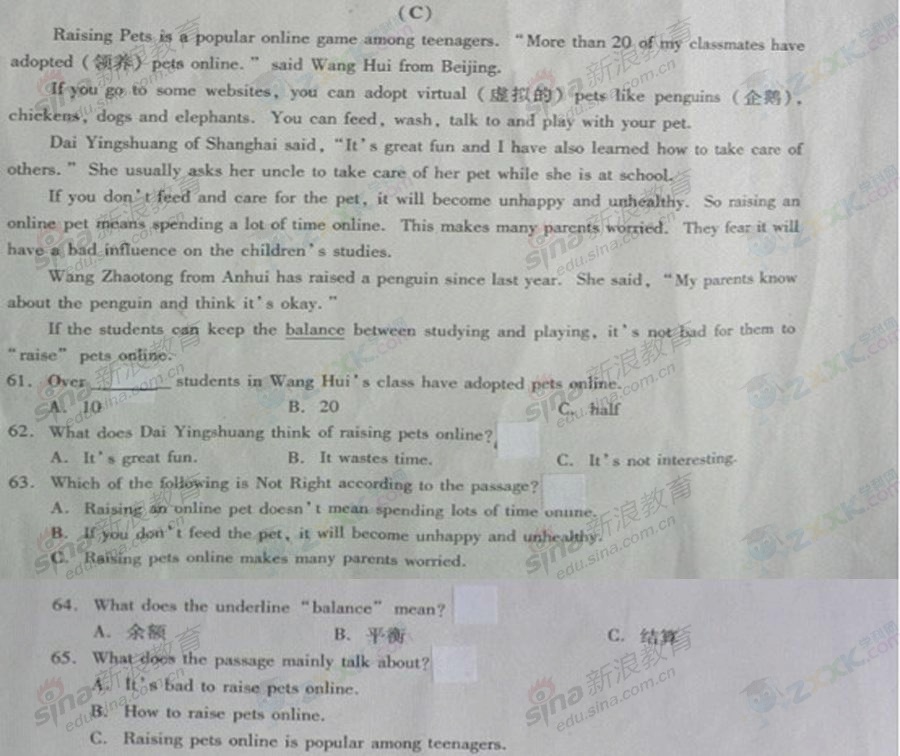 (C)
Raising Pets is a popular online game among teenagers. “More than 20 of my classmates have
adopted (领养) pets online.” said Wang Hui from Beijing.
If you go to some websites, you can adopt virtual (虚拟的) pets like penguins (企鹅),
chickens, dogs and elephants. You can feed, wash, talk to and play with your pet.
Dai Yingshuang of Shanghai said, “It's great fun and I have also learned how to take care of
others.” She usually asks her uncle to take care of her pet while she is at school.
If you don't feed and care for the pet, it will become unhappy and unhealthy. So raising an
online pet means spending a lot of time online. This makes many parents worried. They fear it will
have a bad influence on the children's studies.
Wang Zhaotong from Anhui has raised a penguin since last year. She said, “My parents know
about the penguin and think it's okay.”
If the students can keep the balance between studying and playing, it's not bad for them to
“raise” pets online.
61. Over ________ students in Wang Hui's class have adopted pets online.
A. 10 B. 20 C. half
62. What does Dai Yingshuang think of raising pets online?
A. It's great fun. B. It wastes time. C. It's not interesting.
63. Which of the following is Not Right according to the passage?
A. Raising an online pet doesn't mean spending lots of time online.
B. If you don't feed the pet, it will become unhappy and unhealthy.
C. Raising pets online makes many parents worried.
64. What does the underline “balance” mean?
A. 余额 B. 平衡 C. 结算
65. What does the passage mainly talk about?
A. It's bad to raise pets online.
B. How to raise pets online.
C. Raising pets online is popular among teenagers.
sina 新浪教育
edu.sina.com.cn